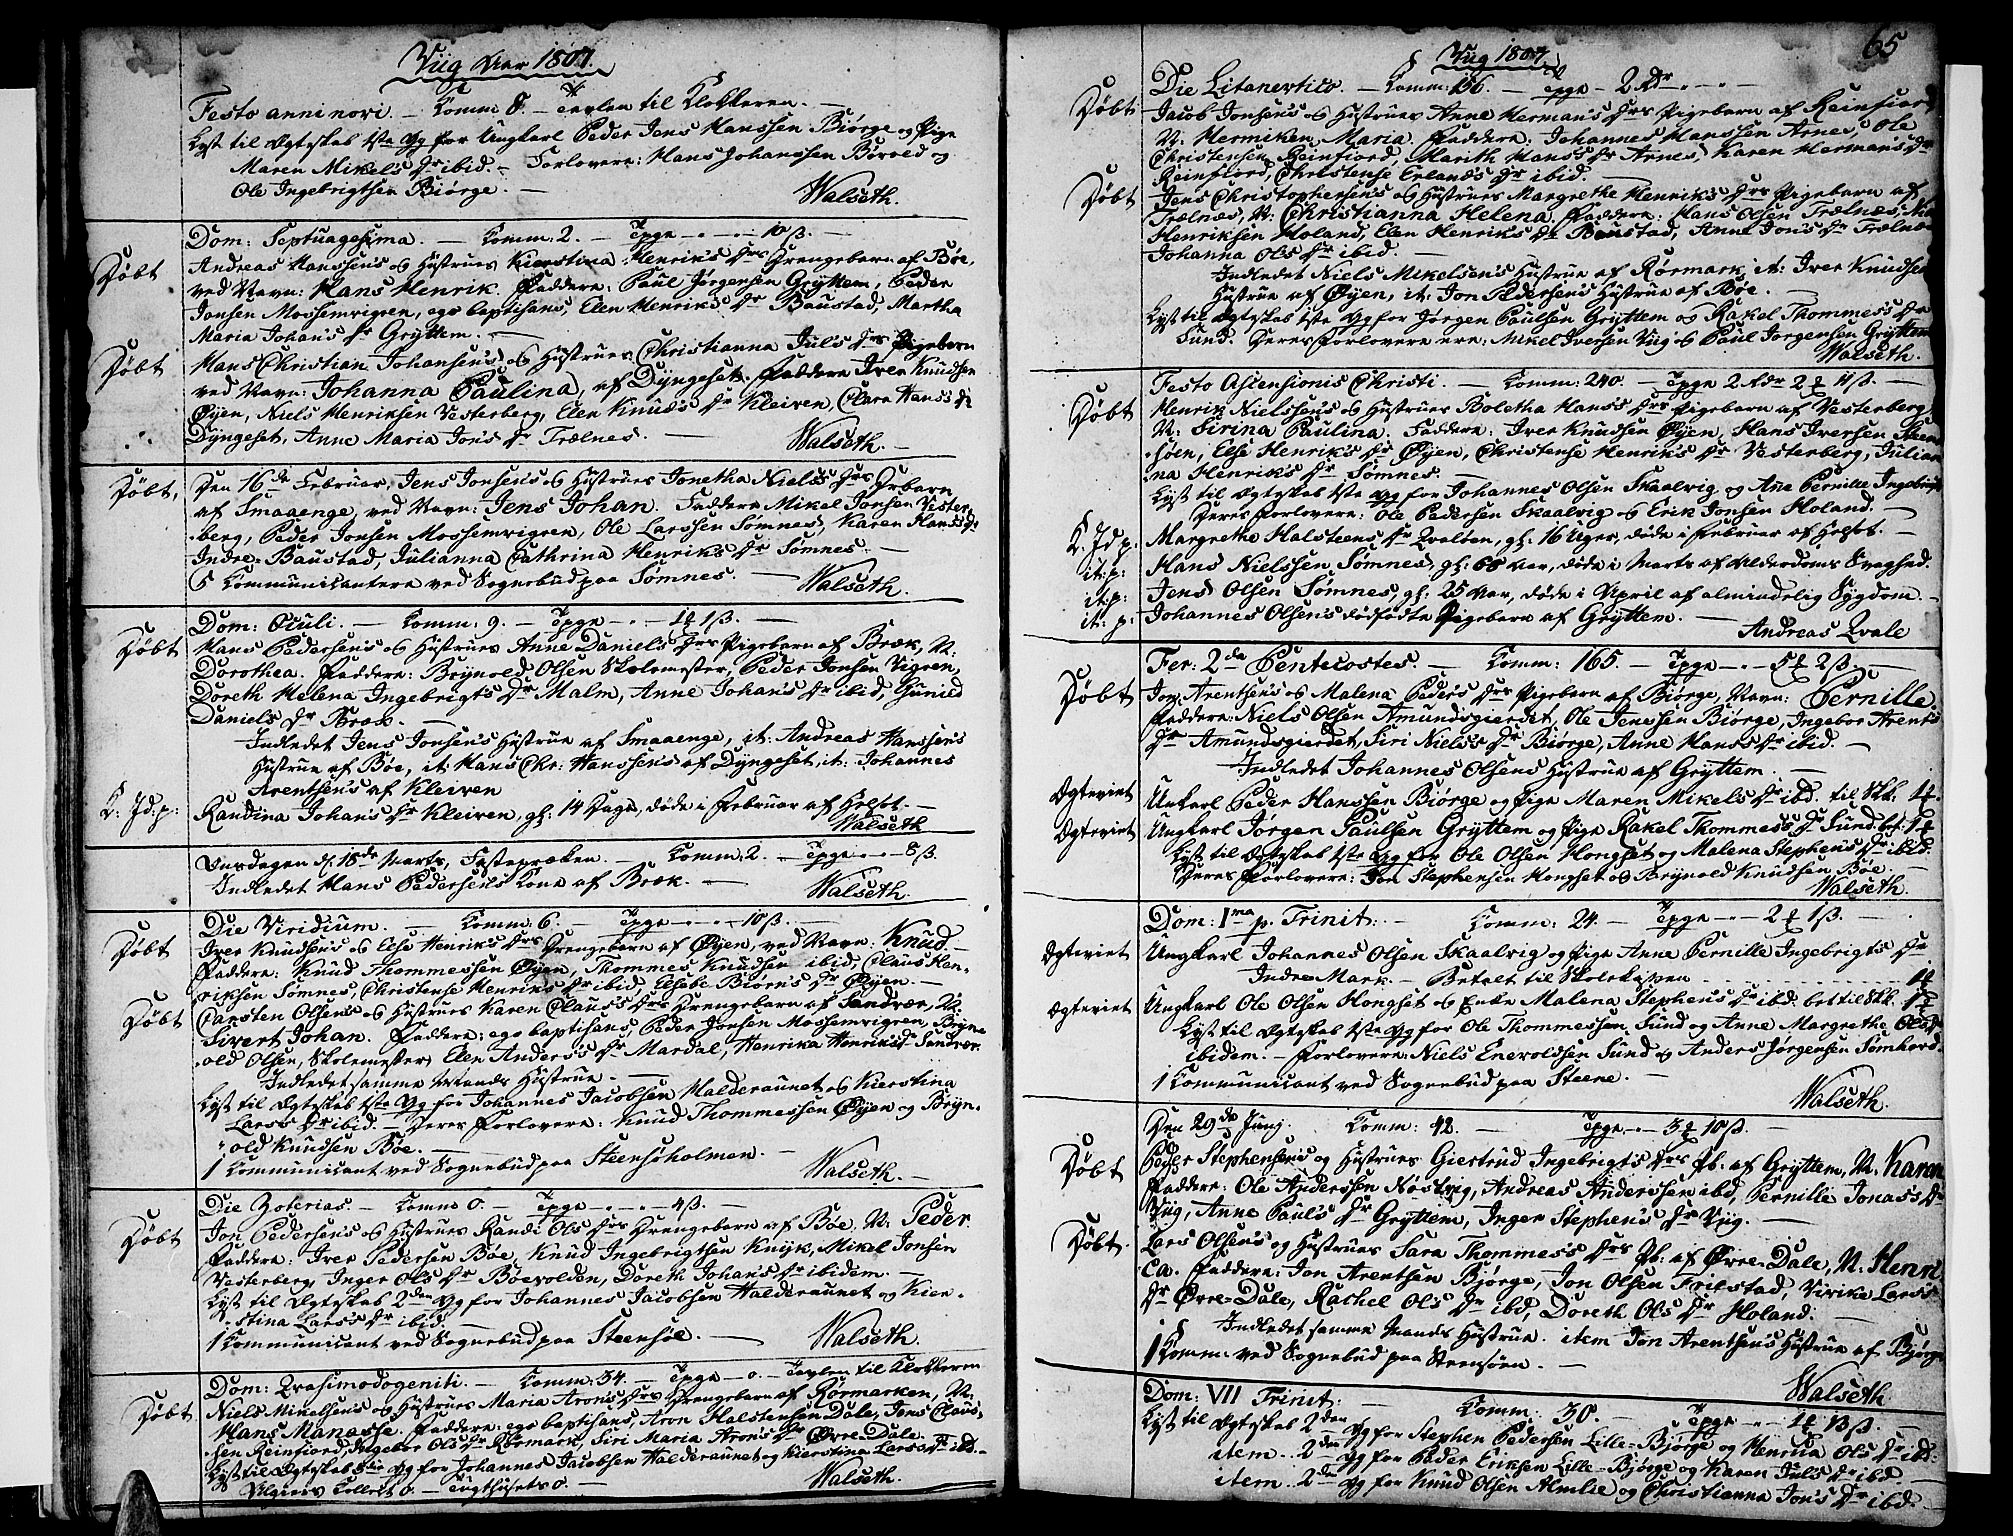 Viig Aar 1807.
Festo anni novi. — Comm: 8. — Tavlen til Klokkeren. —
Lyst til Ægteskab 1ste Gg for Ungkarl Peder Jens Hanssen Biørge og Pige
Maren Mikels Dr ibid. — Forlovere: Hans Johanssen Børvold og
Ole Ingebrigtsen Biørge. —
Walseth.
Dom: Septuagesima. — Comm: 2. — Tpge — 10 ß. —
Døbt
Andreas Hanssen's og Hustrues Kierstina Henrik's Drs Drengebarn af Bøe,
ved Navn: Hans Henrik. Faddere: Paul Jørgensen Gryttem, Peder
Jonsen Mossemvigren, ego baptisans, Elen Henrik's Dr Baustad, Martha
Maria Johan's Dr Gryttem. —
Døbt
Hans Christian Johansen's og Hustrues Christianna Jul's Drs Pigebarn
ved Navn: Johanna Paulina, af Dyngeset. Faddere Iver Knudsen
Øyen, Niels Henriksen Vesterberg, Elen Knud's Dr Kleiven, Clara Hans's Dr
Dyngeset, Anne Maria Jon's Dr Trælnes. —
Walseth. —
Døbt,
Den 16de Februar, Jens Jonsen's og Hustrues Jonetha Niels's Drs Drbarn
af Smaaenge, ved Navn: Jens Johan. Faddere Mikel Jonsen Vester-
berg, Peder Jonsen Mossemvigren, Ole Larssen Sømnes, Karen Hans's Dr
Indre-Baustad, Julianna Cathrina Henrik's Dr Sømnes. —
5 Communicantere ved Sognebud paa Sømnes. —
Walseth.
Dom: Oculi. — Comm: 9. — Tpge — 1 ß. —
Døbt
Hans Pedersen's og Hustrues Anne Daniels Drs Pigebarn af Bræk, N:
Dorothea. Faddere: Brynold Olsen Skolemester, Peder Jonsen Vigren,
Doreth Helena Ingebrigts Dr Malm, Anne Johan's Dr ibid, Gunild
Daniels Dr Bræk. —
Indledet Jens Jonsen's Hustrue af Smaaenge, it: Andreas Hanssen's
Hustrue af Bøe, it: Hans Chr: Hanssen's af Dyngeset, it: Johannes
Arentsen's af Kleiven
K: Jd: p:
Randina Johan's Dr Kleiven, gl: 14 Dage, døde i Februar af Helsot. —
Walseth
Onsdagen d: 18de Marts, Fastepræken. — Comm: 2. — Tpge — 8 ß.
Indledet Hans Pedersen's Kone af Bræk. —
Walseth.
Die Viridium. — Comm: 6. — Tpge — 10 ß. —
Døbt
Iver Knudsen's og Else Henriks Drs Drengebarn af Øyen, ved Navn: Knud. —
Faddere: Knud Thommessen Øyen, Thommes Knudsen ibid, Claus Hen-
riksen Sømnes, Christense Henriks Dr ibid, Elsebe Biørn's Dr Øyen. —
Døbt
Carsten Olsen's og Hustrues Karen Claus's Drs Drengebarn af Sandvær, N:
Sivert Johan. Faddere: ego baptisans, Peder Jonsen Mossemvigren, Bryn-
old Olsen, Skolemester, Elen Anders's Dr Mardal, Henrika Henriks Dr Sandvær
Indledet samme Mands Hustrue. —
Lyst til Ægteskab 1ste Gg for Johannes Jacobsen Halderaunet og Kierstina
Lars's Dr ibid. — Deres Forlovere: Knud Thommessen Øyen og Bryn-
old Knudsen Bøe. —
1 Communicant ved Sognebud paa Steensholmen. —
Walseth. —
Die Zoterias. — Comm 0. — Tpge — 4 ß. —
Døbt
Jon Pedersen's og Hustrues Randi Ols Drs Drengebarn af Bøe, N: Peder.
Faddere: Iver Pedersen Bøe, Knud Ingebrigtsen Knyk, Mikel Jonsen
Vesterberg, Inger Ols Dr Bøevolden, Doreth Johan's Dr ibidem. —
Lyst til Ægteskab 2den Gg for Johannes Jacobsen Halderaunet og Kier-
stina Lars's Dr ibid. —
1 Communicant ved Sognebud paa Steensøe. —
Walseth.
Dom: Qvasimodogeniti. — Comm: 34. — Tpge — 0. — Tavlen til Klokkeren
Døbt
Niels Mikelsen's og Hustrues Maria Aron's Drs Drengebarn af Rørmarken, N:
Hans Manasse. Faddere: ego baptisans, Aron Halstensen Dale, Jens Claus-
sen Reinfiord, Ingebor Ols Dr Rørmark, Siri Maria Aron's Dr Øvre-Dale. —
Lyst til Ægteskab 3die Gg for Johannes Jacobsen Halderaunet og Kierstina Lars's Dr ibd. —
Algiers Collect 0. — Tugthusets 0. —
Walseth.
65
Viig 1807.
Die Litanevtico. — Comm: 156. — Tpge — 2 Rdr —
Døbt
Jacob Jonsen's og Hustrues Anne Herman's Drs Pigebarn af Reinfiord
N: Hermiken Maria. Faddere: Johannes Hanssen Arnes, Ole
Christensen Reinfiord, Marith Hans's Dr Arnes, Karen Hermans Dr
Reinfiord, Christense Erlands Dr ibid. —
Døbt
Jens Christophersen's og Hustrues Margrethe Henriks Drs Pigebarn af
Trælnæs, N: Christianna Helena. Faddere: Hans Olsen Trælnes,
Henriksen Holand, Elen Henrik's Dr Baustad, Anne Jon's Dr Trælnes
Johanna Ols Dr ibid. —
Indledet Niels Mikelsen's Hustrue af Rørmark, it: Iver Knudsen
Hustrue af Øyen, it: Jon Pedersens Hustrue af Bøe. —
Lyst til Ægteskab 1ste Gg for Jørgen Paulsen Gryttem og Rakel Thommes's Dr
Sund. Deres Forlovere ere: Mikel Iversen Viig og Paul Jørgensen Gryttem
Walseth.
Festo Ascensionis Christi. — Comm: 240. — Tpge 2 Rdr 2 11 ß. —
Døbt
Henrik Nielssen's og Hustrues Boletha Hans's Drs Pigebarn af Vesterberg
N: Sirina Paulina. Faddere: Iver Knudsen Øyen, Hans Iversen Steen-
søen, Else Henrik's Dr Øyen, Christense Henrik's Dr Vesterberg, Julian-
na Henrik's Dr Sømnes. —
Lyst til Ægteskab 1ste Gg for Johannes Olsen Skaalvig og Ane Pernille Ingebrigts
Deres Forlovere: Ole Pedersen Skaalvig og Erik Jonsen Holand. —
K: Jd p:
Margrethe Halsteens Dr Qvelten, gl: 16 Uger, døde i Februar af Helsot. —
it: p:
Hans Nielssen Sømnes, gl: 68 Aar, døde i Marts af Alderdoms Svaghed.
it: p:
Jens Olsen Sømnes, gl: 25 Aar, døde i April af almindelig Sygdom. —
it: p:
Johannes Olsen's dødfødte Pigebarn af Gryttem. —
Andreas Qvale
Fer: 2da Pentecostes. — Comm: 165. — Tpge — 5 2 ß. —
Døbt
Jon Arentsen's og Malena Peder's Drs Pigebarn af Biørge, Navn: Pernille.
Faddere: Niels Olsen Amundsgierdet, Ole Jenssen Biørge, Ingebor Arents
Dr Amundsgierdet, Siri Niels's Dr Biørge, Anne Hans's Dr ibid. —
Indledet Johannes Olsens Hustrue af Gryttem. —
Ægteviet
Unkarl Peder Hanssen Biørge og Pige Maren Mikels Dr ibd. til Skk: 1
Ægteviet
Ungkarl Jørgen Paulsen Gryttem og Pige Rakel Thommes's Dr Sund bet: 1
Lyst til Ægteskab 1ste Gg for Ole Olsen Hongset og Malena Stephens Dr ibid.
Deres Forlovere: Jon Stephensen Hongset og Brynold Knudsen Bøe.
Walseth.
Dom: 1ma p. Trinit: — Comm: 24. — Tpge — 2 1 ß. —
Ægteviet
Ungkarl Johannes Olsen Skaalvig og Pige Anne Pernille Ingebrigts Dr
Indre-Mark. — Betalt til Skolekassen 1
Ægteviet
Ungkarl Ole Olsen Hongset og Enke Malena Stephens Dr ibd. bet til Skk. 1
Lyst til Ægteskab 1ste Gg for Ole Thommessen Sund og Anne Margrethe Ols Dr
ibidem. — Forlovere: Niels Enevoldsen Sund og Anders Jørgensen Sømhovd.
1 Communicant ved Sognebud paa Steene. —
Walseth.
Den 29de Junj. Comm: 42. — Tpge — 3 10 ß. —
Døbt
Peder Stephensen's og Hustrues Giertrud Ingebrigts Drs Pb. af Gryttem, N. Karen
Faddere: Ole Anderssen Nøstvig, Andreas Anderssen ibd, Pernille Jonas's Dr
Viig, Anne Paul's Dr Gryttem, Inger Stephen's Dr Viig. —
Døbt.
Lars Olsen's og Hustrues Sara Thommes's Drs Pb. af Øvre-Dale, N. Henri-
ca. Faddere: Jon Arentsen Bjørge, Jon Olsen Friestad, Virike Lars's
Dr Øvre-Dale, Rachel Ols Dr ibd, Doreth Ols Dr Holand. —
Indledet samme Mands Hustrue. item Jon Arentsen's Hustrue af Bjørge
1 Comm: ved Sognebud paa Steensøen. —
Walseth
Dom: VII Trinit: Comm: 30. — Tpge — 1 13 ß. —
Lyst til Ægteskab 2den Gg for Stephen Pedersen Lille-Bjørge og Henrica Ols Dr ibd:
item 2den Gg for Peder Eriksen Lille-Bjørge og Karen Juls Dr ibd
item 2den Gg for Knud Olsen Almlie og Christianna Jon's Dr ibd.